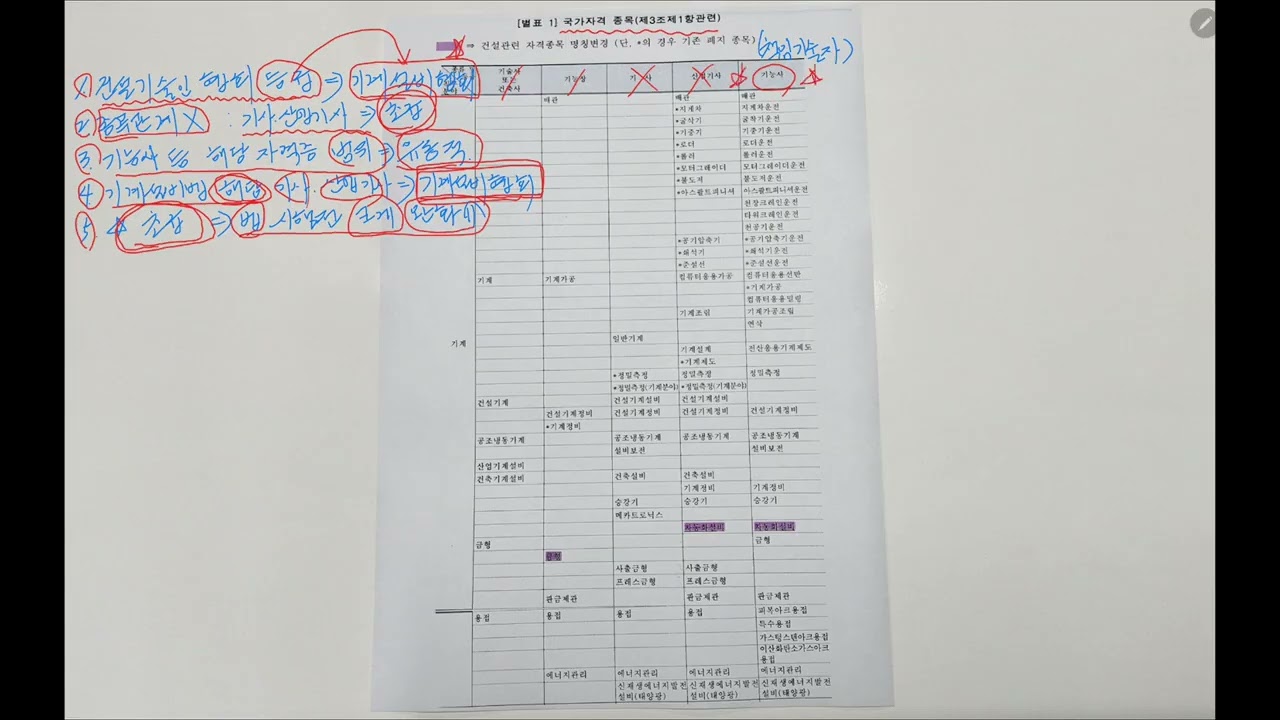 [별표 1] 국가자격 종목(제3조제1항관련)
⇒ 건설관련 자격종목 명칭변경 (단, *의 경우 기존 폐지 종목) (책임기술자)
1) 건설기술인 협회 등점 ⇒ 기계설비협회
2) 종목관계 X : 기사.산업기사 ⇒ 초급
3) 기능사 등 해당 자격증 범위 ⇒ 유동적
4) 기계설비법 해당 기사.산업기사 ⇒ 기계설비협회
5) 초급 ⇒ 법 시행전
기술사 또는 건축사 기능장 기사 산업기사 기능사
배관 배관 배관
*지게차 지게차운전
*굴삭기 굴착기운전
*기중기 기중기운전
*로더 로더운전
*롤러 롤러운전
*모터그레이더 모터그레이더운전
*불도저 불도저운전
*아스팔트피니셔 아스팔트피니셔운전
천장크레인운전
타워크레인운전
천공기운전
*공기압축기 *공기압축기운전
*쇄석기 *쇄석기운전
*준설선 *준설선운전
기계 기계가공 컴퓨터응용가공 컴퓨터응용선반
*기계가공
컴퓨터응용밀링
기계조립 기계가공조립
연삭
일반기계
기계
기계설계 전산응용기계제도
*기계제도
*정밀측정 정밀측정 정밀측정
*정밀측정(기계분야) *정밀측정(기계분야)
건설기계 건설기계설비 건설기계설비
건설기계정비 건설기계정비 건설기계정비 건설기계정비
*기계정비
공조냉동기계 공조냉동기계 공조냉동기계 공조냉동기계
설비보전 설비보전
산업기계설비
건축기계설비 건축설비 건축설비
기계정비 기계정비
승강기 승강기 승강기
메카트로닉스
자동화설비 자동화설비
금형 금형
금형
사출금형 사출금형
프레스금형 프레스금형
판금제관 판금제관 판금제관
용접 용접 용접 용접 피복아크용접
특수용접
가스텅스텐아크용접
이산화탄소가스아크용접
에너지관리 에너지관리 에너지관리 에너지관리
신재생에너지발전설비(태양광) 신재생에너지발전설비(태양광) 신재생에너지발전설비(태양광)